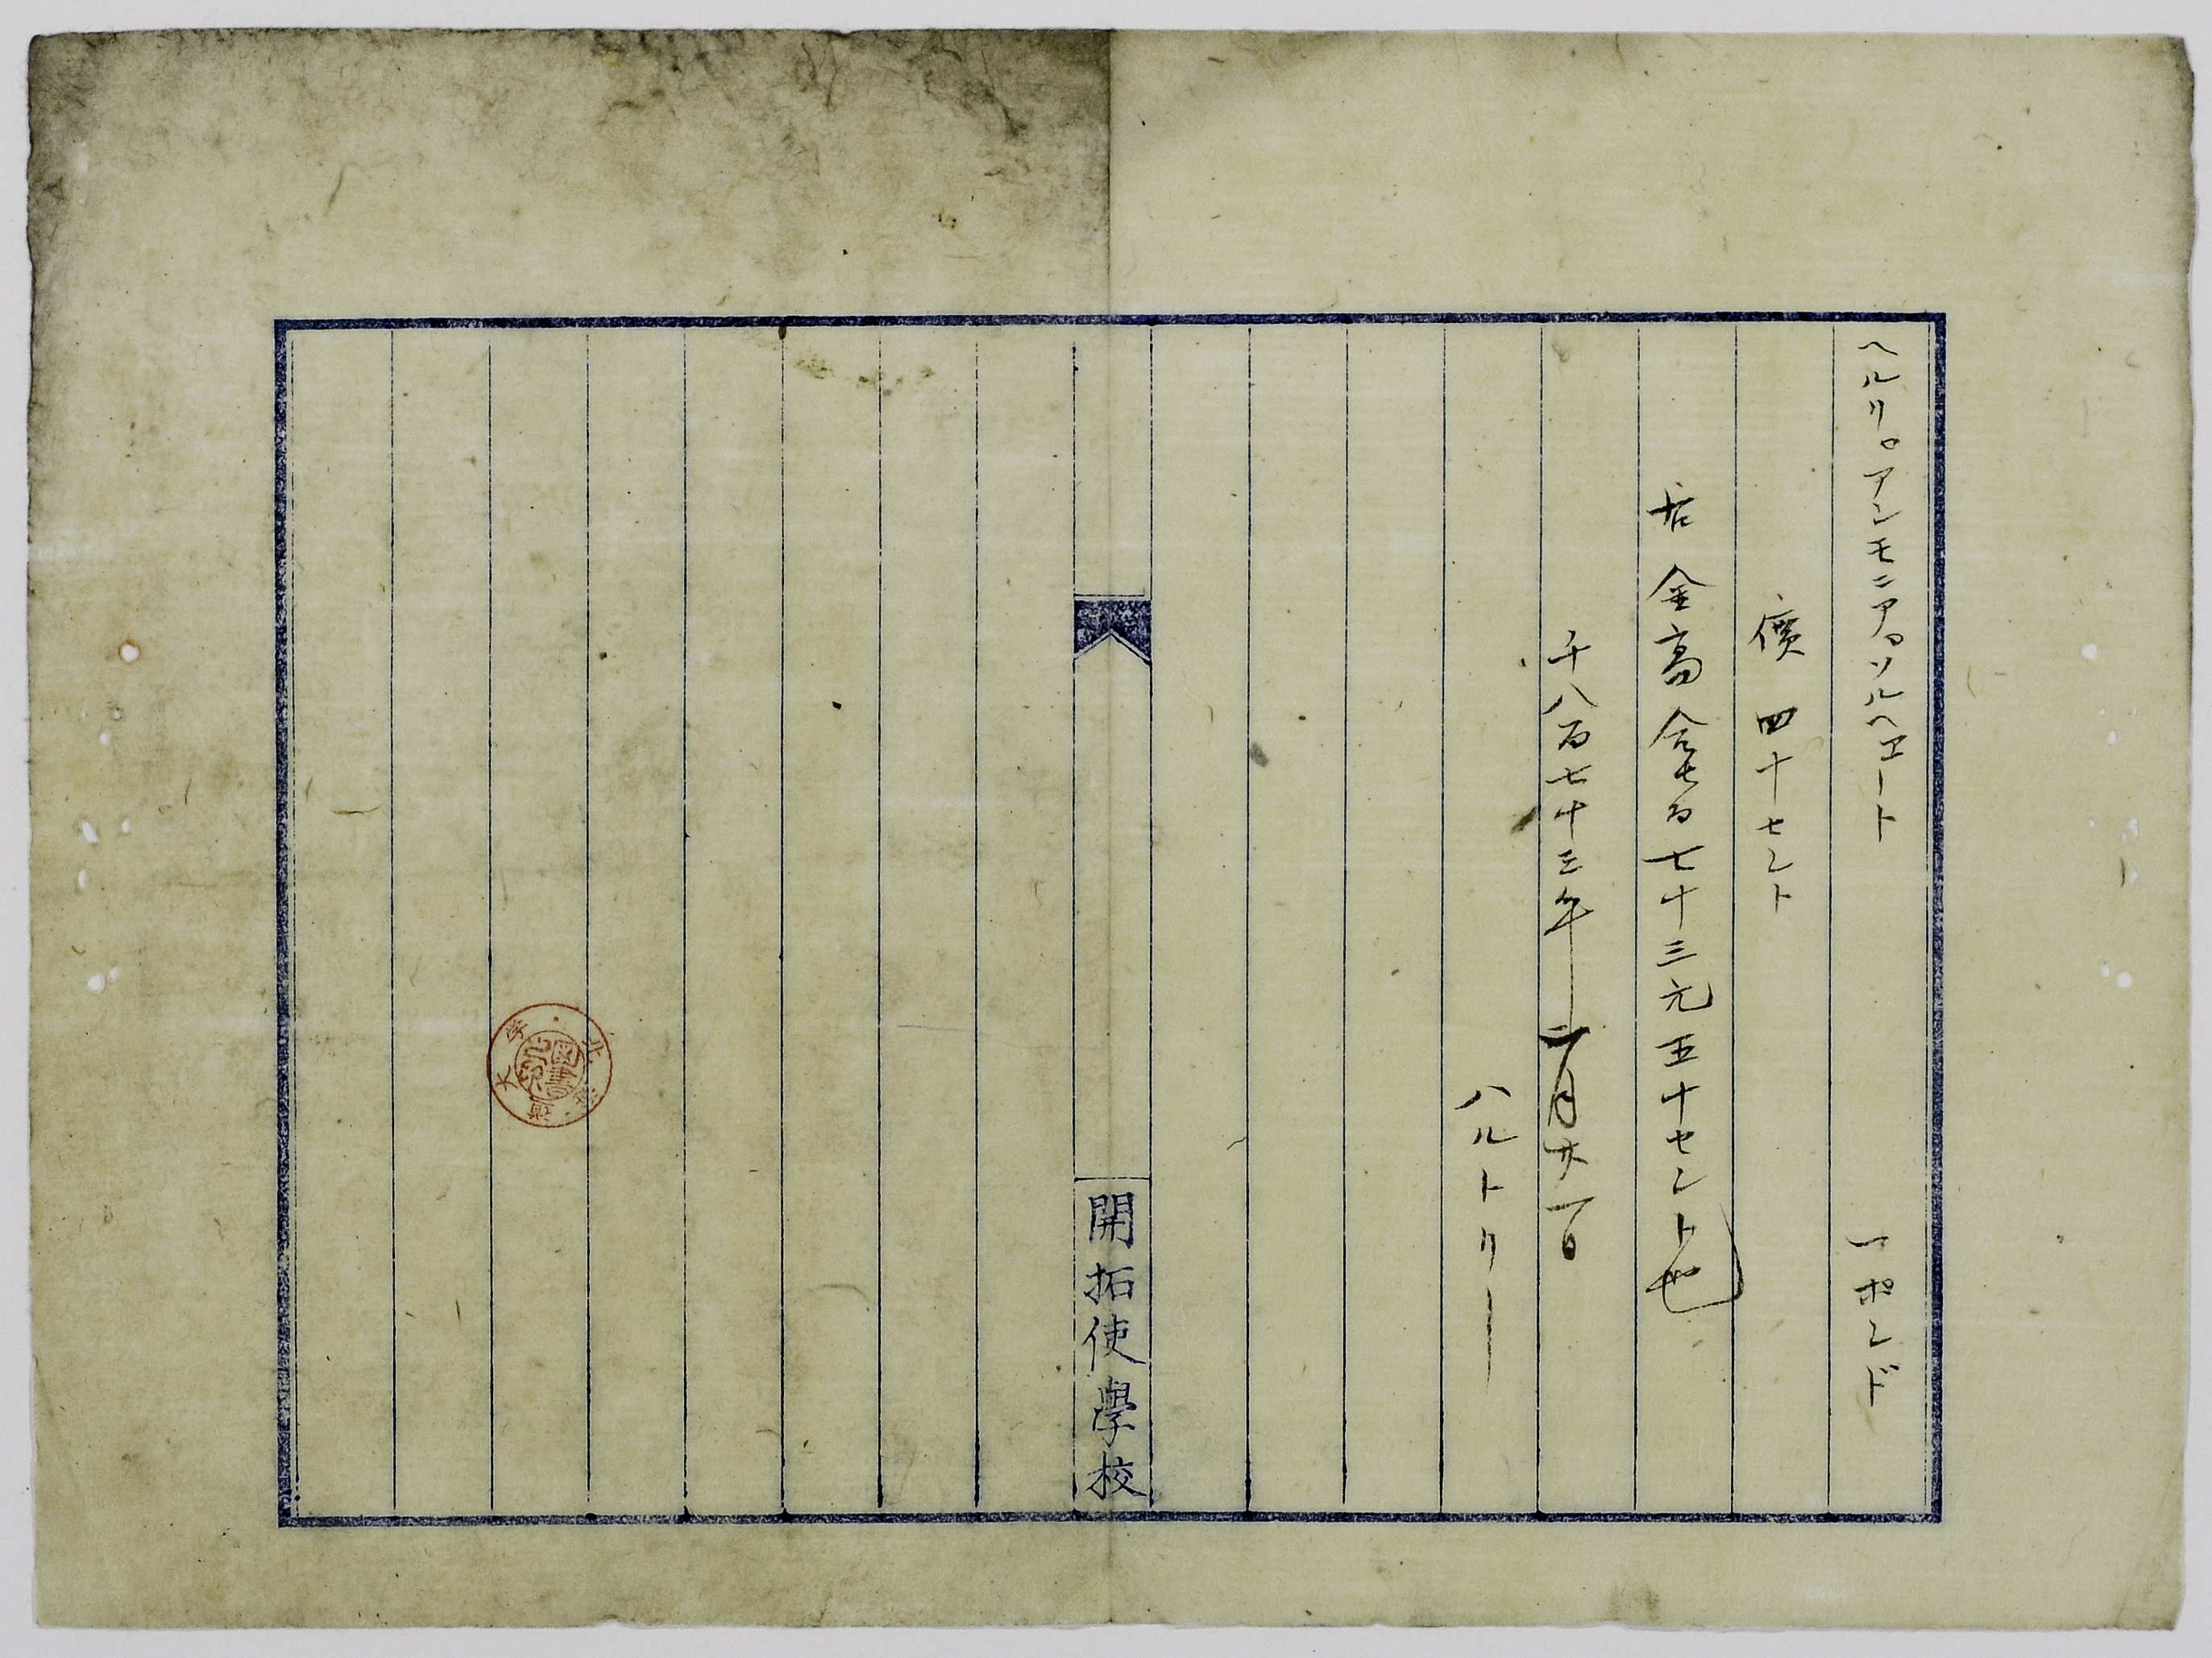 ヘルリ。アンモニア。ソルヘエート 一ポンド
價 四十セント
右金高合七百七十三元五十セント也
千八百七十三年二月廿一日
ハルトリー
開拓使學校